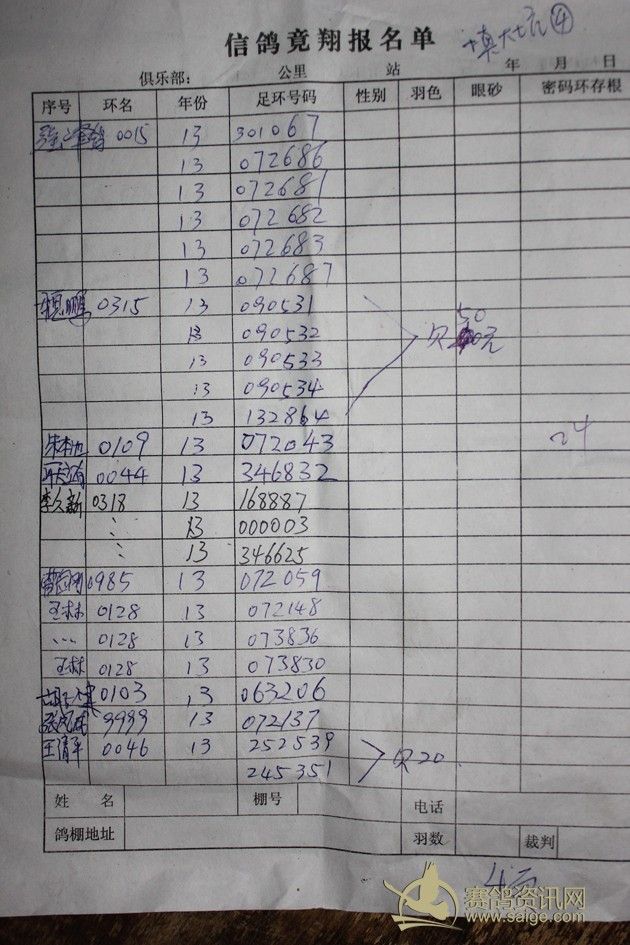 信鸽竟翔报名单 ④
俱乐部： 公里 站 年 月 日
序号 环名 年份 足环号码 性别 羽色 眼砂 密码环存根
0015 13 301067
13 072686
13 072681
13 072682
13 072683
13 072687
鹏 0315 13 090531
13 090532 50
13 090533 欠 元
13 090534
13 132864
朱本 0109 13 072043 24
0044 13 346832
李久新 0318 13 168887
13 000003
13 346625
曹 0985 13 072059
王林 0128 13 072148
... 0128 13 073836
王林 0128 13 073830
胡 0103 13 063206
张 9999 13 072137
王清平 0046 13 252539
245351 欠20.
姓 名 棚号 电话
鸽棚地址 羽数 裁判
赛鸽资讯网
www.saige.com